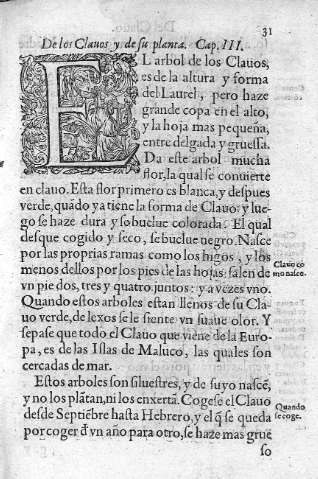 31
De los Clauos y de su planta. Cap. III.
EL arbol de los Clauos,
es de la altura y forma
del Laurel, pero haze
grande copa en el alto,
y la hoja mas pequeña,
entre delgada y gruessa.
Da este arbol mucha
flor, la qual se conuierte
en clauo. Esta flor primero es blanca, y despues
verde, quãdo ya tiene la forma de Clauo: y lue-
go se haze dura y se buelue colorada. El qual
desque cogido y seco, se buelue negro. Nasce
por las proprias ramas como los higos, y los
menos dellos por los pies de las hojas: salen de
vn pie dos, tres y quatro juntos: y a vezes vno.
Clauo co
mo nasce.
Quando estos arboles estan llenos de su Cla-
uo verde, de lexos se le siente vn suaue olor. Y
sepase que todo el Clauo que viene de la Euro-
pa, es de las Islas de Maluco, las quales son
cercadas de mar.
Estos arboles son siluestres, y de suyo nascẽ,
y no los plãtan, ni los enxertã. Cogese el Clauo
desde Septiẽbre hasta Hebrero, y el q̃ se queda
por coger d̃ vn año para otro, se haze mas grue
Quando
se coge.
so